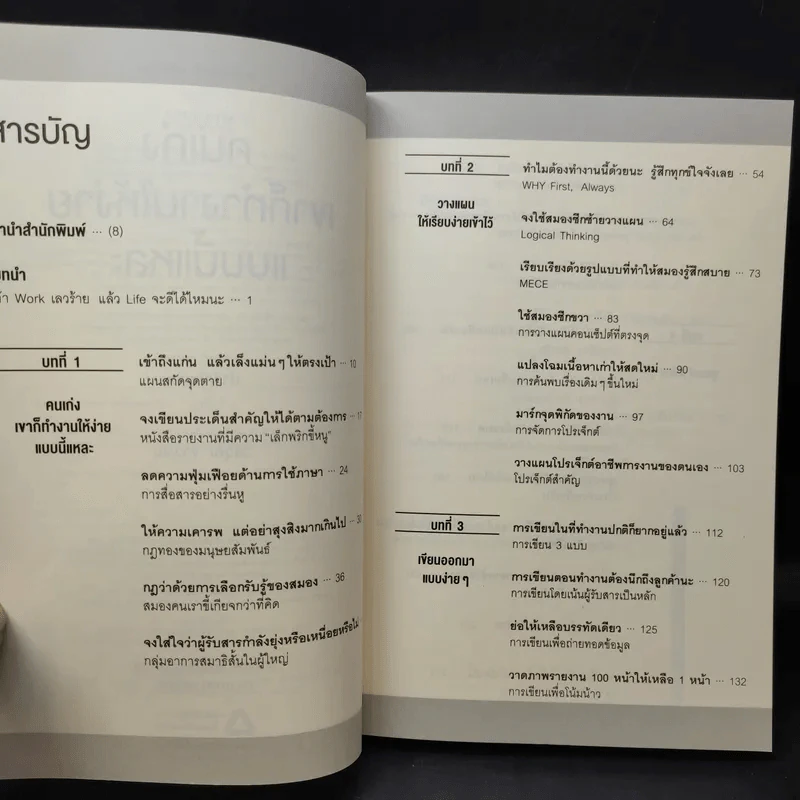 สารบัญ
คำนำสำนักพิมพ์ ··· (8)
บทนำ
ถ้า Work เลวร้าย แล้ว Life จะดีได้ไหมนะ ··· 1
บทที่ 1
คนเก่ง
เขาก็ทำงานให้ง่าย
แบบนี้แหละ
เข้าถึงแก่น แล้วเล็งแม่นๆ ให้ตรงเป้า ··· 10
แผนสกัดจุดตาย
จงเขียนประเด็นสำคัญให้ได้ตามต้องการ ··· 17
หนังสือรายงานที่มีความ "เล็กพริกขี้หนู"
ลดความฟุ่มเฟือยด้านการใช้ภาษา ··· 24
การสื่อสารอย่างรื่นหู
ให้ความเคารพ แต่อย่าสุงสิงมากเกินไป ··· 30
กฎทองของมนุษยสัมพันธ์
กฎว่าด้วยการเลือกรับรู้ของสมอง ··· 36
สมองคนเราขี้เกียจกว่าที่คิด
จงใส่ใจว่าผู้รับสารกำลังยุ่งหรือเหนื่อยหรือไม่
กลุ่มอาการสมาธิสั้นในผู้ใหญ่
บทที่ 2
วางแผน
ให้เรียบง่ายเข้าไว้
ทำไมต้องทำงานนี้ด้วยนะ รู้สึกทุกข์ใจจังเลย ··· 54
WHY First, Always
จงใช้สมองซีกซ้ายวางแผน ··· 64
Logical Thinking
เรียบเรียงด้วยรูปแบบที่ทำให้สมองรู้สึกสบาย ··· 73
MECE
ใช้สมองซีกขวา ··· 83
การวางแผนคอนเซ็ปต์ที่ตรงจุด
แปลงโฉมเนื้อหาเก่าให้สดใหม่ ··· 90
การค้นพบเรื่องเดิมๆ ขึ้นใหม่
มาร์กจุดพิกัดของงาน ··· 97
การจัดการโปรเจ็กต์
วางแผนโปรเจ็กต์อาชีพการงานของตนเอง ··· 103
โปรเจ็กต์สำคัญ
บทที่ 3
เขียนออกมา
แบบง่ายๆ
การเขียนในที่ทำงานปกติก็ยากอยู่แล้ว ··· 112
การเขียน 3 แบบ
การเขียนตอนทำงานต้องนึกถึงลูกค้านะ ··· 120
การเขียนโดยเน้นผู้รับสารเป็นหลัก
ย่อให้เหลือบรรทัดเดียว ··· 125
การเขียนเพื่อถ่ายทอดข้อมูล
วาดภาพรายงาน 100 หน้าให้เหลือ 1 หน้า ··· 132
การเขียนเพื่อโน้มน้าว